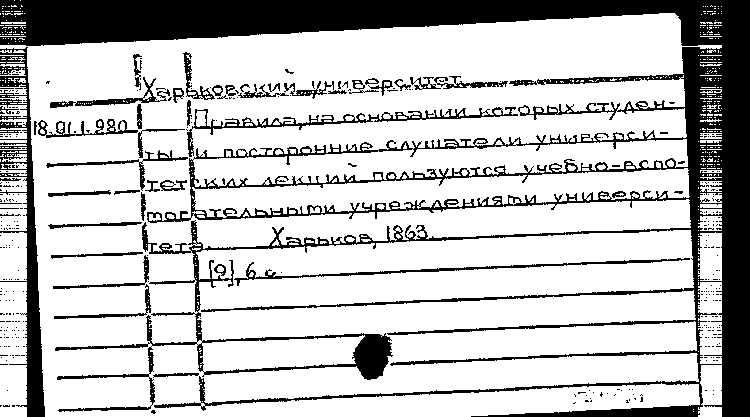 Харьковский университет.
18.91.1.980 Правила, на основании которых студен-
ты и посторонние слушатели универси-
тетских лекций пользуются учебно-вспо-
могательными учреждениями универси-
тета. Харьков, 1863.
[9], 6 с